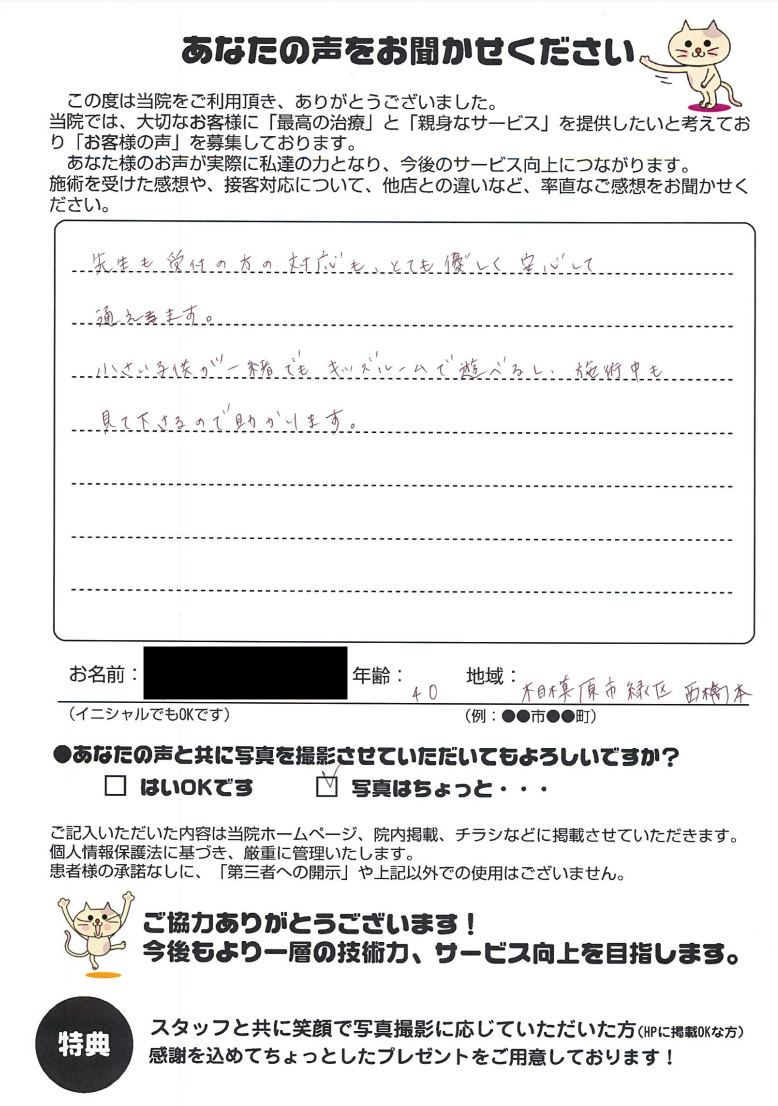 あなたの声をお聞かせください
この度は当院をご利用頂き、ありがとうございました。
当院では、大切なお客様に「最高の治療」と「親身なサービス」を提供したいと考えてお
り「お客様の声」を募集しております。
あなた様のお声が実際に私達の力となり、今後のサービス向上につながります。
施術を受けた感想や、接客対応について、他店との違いなど、率直なご感想をお聞かせく
ださい。
先生も受付の方の対応も、とても優しく安心して
通えます。
小さい子供が一緒でもキッズルームで遊べるし、施術中も
見て下さるので助かります。
お名前： 年齢：40 地域：相模原市緑区西橋本
（イニシャルでもOKです） （例：●●市●●町）
●あなたの声と共に写真を撮影させていただいてもよろしいですか？
□ はいOKです ☑ 写真はちょっと・・・
ご記入いただいた内容は当院ホームページ、院内掲載、チラシなどに掲載させていただきます。
個人情報保護法に基づき、厳重に管理いたします。
患者様の承諾なしに、「第三者への開示」や上記以外での使用はございません。
ご協力ありがとうございます！
今後もより一層の技術力、サービス向上を目指します。
特典
スタッフと共に笑顔で写真撮影に応じていただいた方(HPに掲載OKな方)
感謝を込めてちょっとしたプレゼントをご用意しております！